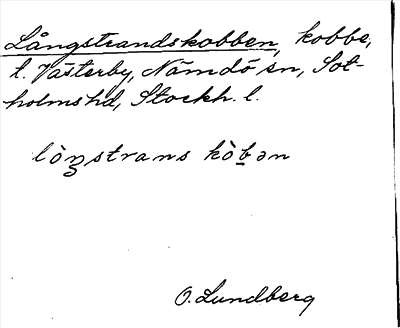 Långstrandskobben, kobbe,
t. Västerby, Nämdö sn, Sot-
holms hd, Stockh. l.
lòŋstrans kòb̲ən
O. Lundberg